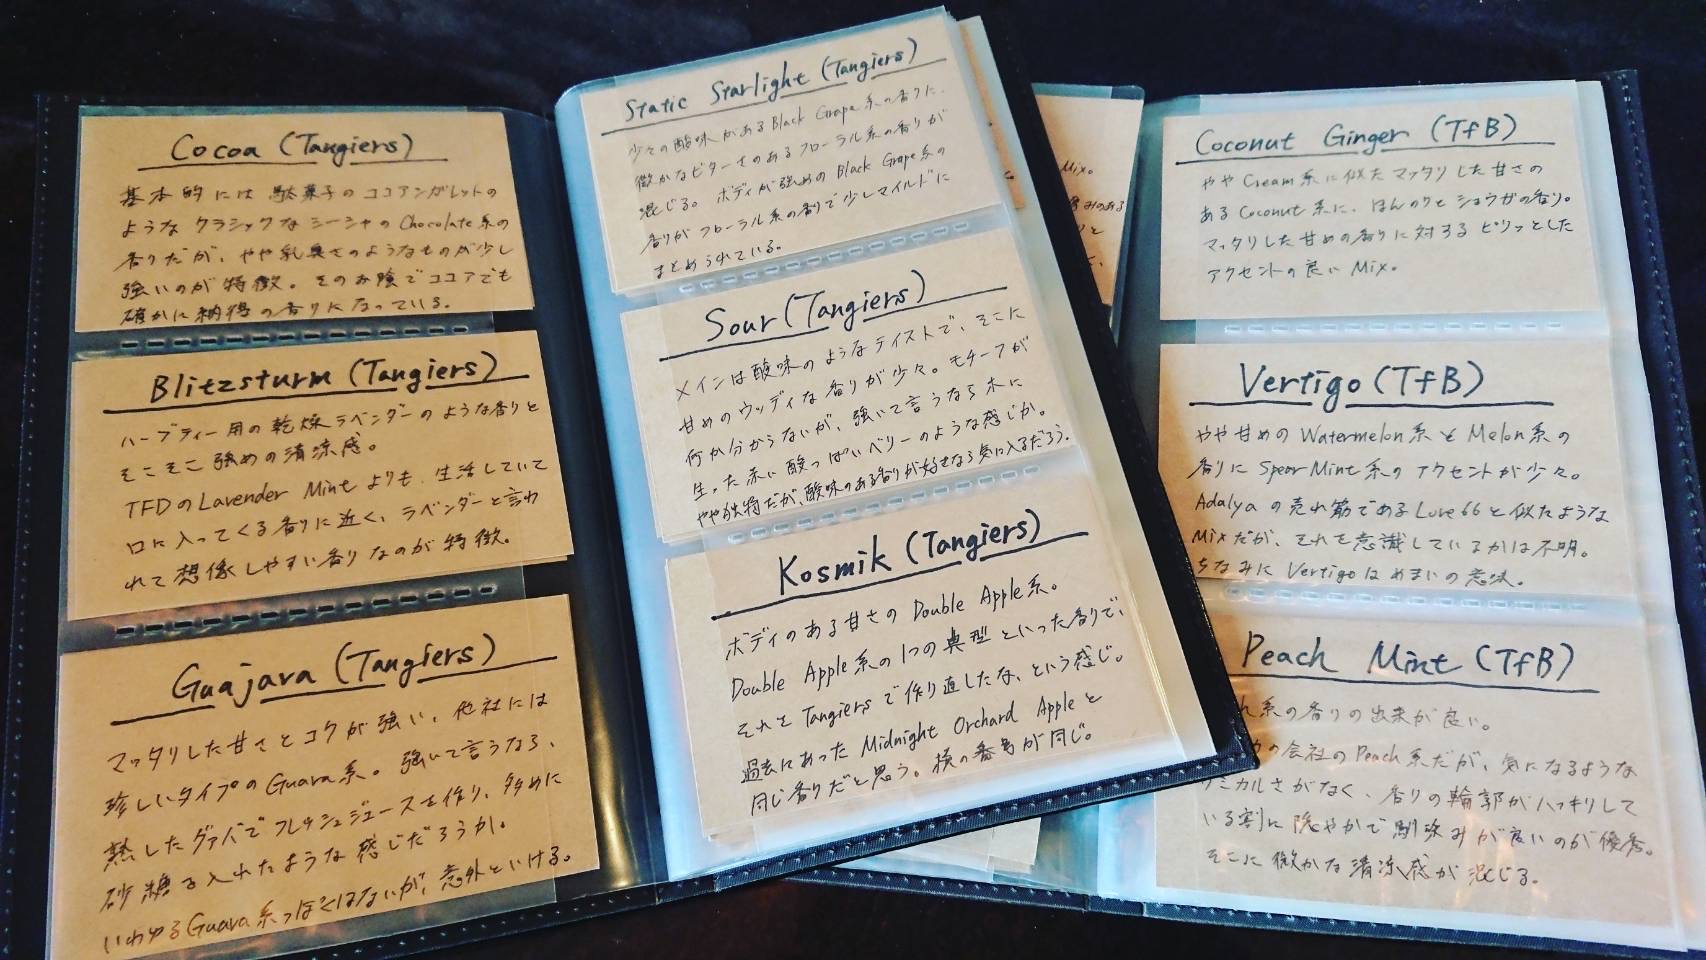 Cocoa (Tangiers)
基本的には駄菓子のココアシガレットの
ようなクラシックなシーシャのChocolate系の
香りだが、やや乳臭さのようなものが少し
強いのが特徴。そのお陰でココアでも
確かに納得の香りになっている。
Blitzsturm (Tangiers)
ハーブティー用の乾燥ラベンダーのような香りと
そこそこ強めの清涼感。
TFDのLavender Mintよりも、生活していて
口に入ってくる香りに近く、ラベンダーと言わ
れて想像しやすい香りなのが特徴。
Guajava (Tangiers)
マッタリした甘さとコクが強い、他社には
珍しいタイプのGuava系。強いて言うなら、
熟したグァバでフレッシュジュースを作り、多めに
砂糖を入れたような感じだろうか。
いわゆるGuava系っぽくはないが、意外といける。
Static Starlight (Tangiers)
少々の酸味があるBlack Grape系の香りに、
微かなビターさのあるフローラル系の香りが
混じる。ボディが強めのBlack Grape系の
香りがフローラル系の香りで少しマイルドに
まとめられている。
Sour (Tangiers)
メインは酸味のようなテイストで、そこに
甘めのウッディな香りが少々。モチーフが
何か分からないが、強いて言うなら木に
生った赤い酸っぱいベリーのような感じか。
やや独特だが、酸味のある香りが好きなら気に入るだろう。
Kosmik (Tangiers)
ボディのある甘さのDouble Apple系。
Double Apple系の1つの典型といった香りで、
それをTangiersで作り直したな、という感じ。
過去にあったMidnight Orchard Appleと
同じ香りだと思う。横の番号が同じ。
Mix。
Coconut Ginger (TfB)
ややCream系に似たマッタリした甘さの
あるCoconut系に、ほんのりとショウガの香り。
マッタリした甘めの香りに対するピリッとした
アクセントの良いMix。
Vertigo (TfB)
やや甘めのWatermelon系とMelon系の
香りにSpearMint系のアクセントが少々。
Adalyaの売れ筋であるLove66と似たような
Mixだが、それを意識しているかは不明。
ちなみにVertigoはめまいの意味。
Peach Mint (TfB)
系の香りの出来が良い。
の会社のPeach系だが、気になるような
ミカルさがなく、香りの輪郭がハッキリして
いる割に穏やかで馴染みが良いのが優秀。
そこに微かな清涼感が混じる。